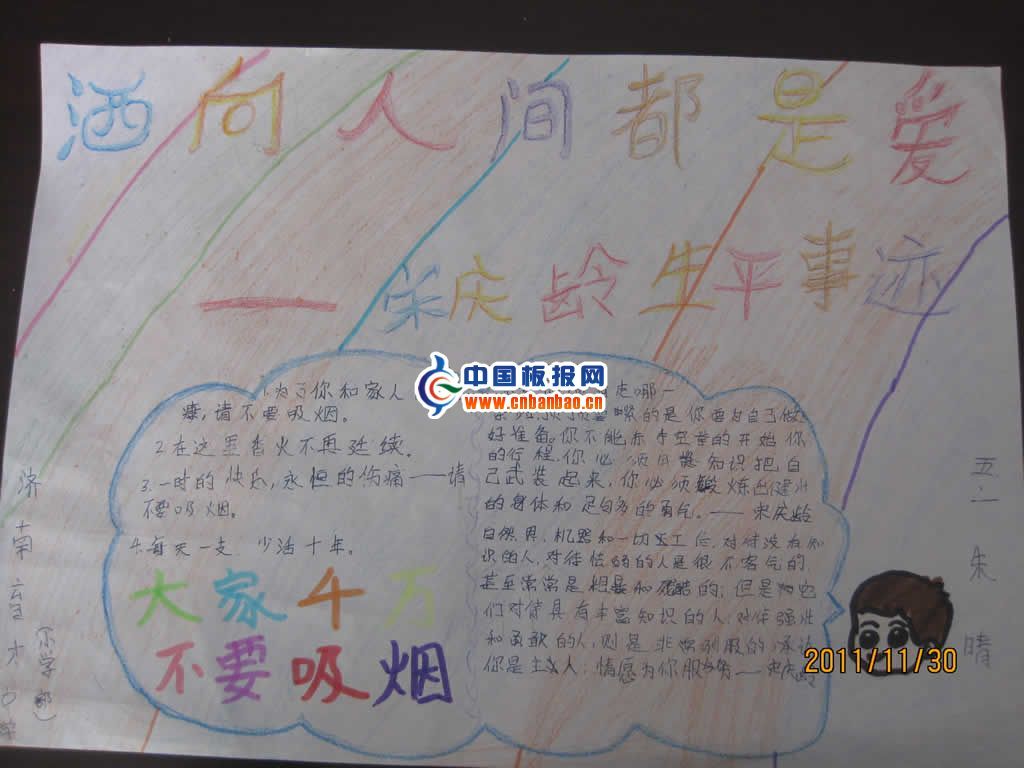 洒向人间都是爱
一宋庆龄生平事迹
1.为了你和家人
康,请不要吸烟。
2.在这里香火不再延续。
3.一时的快乐,永恒的伤痛——请
不要吸烟。
4.每天一支 少活十年。
大家千万
不要吸烟
走哪一
的是你要为自己做
好准备。你不能赤手空拳的开始你
的行程,你必须用知识把自
己武装起来,你必须锻炼出健壮
的身体和足够多的勇气。——宋庆龄
自然界、机器和一切分工后,对待没有知
识的人,对待怯弱的人是很不客气的,
甚至常常是粗暴和残酷的;但是
们对待具有丰富知识的人,对待强壮
和勇敢的人,则是非
你是主人:情愿为你服务——宋庆龄
中国板报网
www.cnbanbao.cn
五.二 朱晴
济南育才中学
(小学部)
2011/11/30